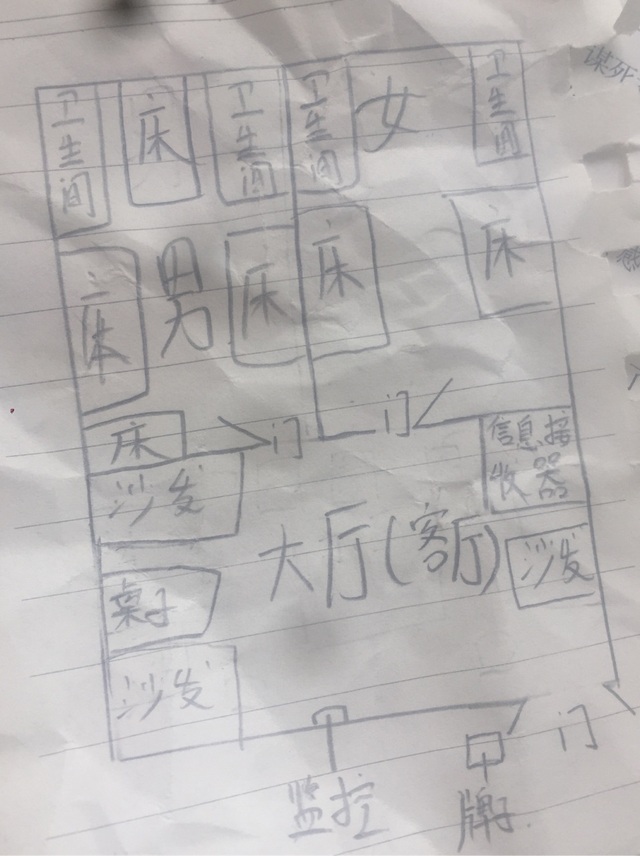 卫生间
床
卫生间
卫生间
女
卫生间
谋死
床
男
床
床
床
床
门
门
信息接
收器
沙发
大厅(客厅)
沙发
桌子
沙发
门
监控
牌子